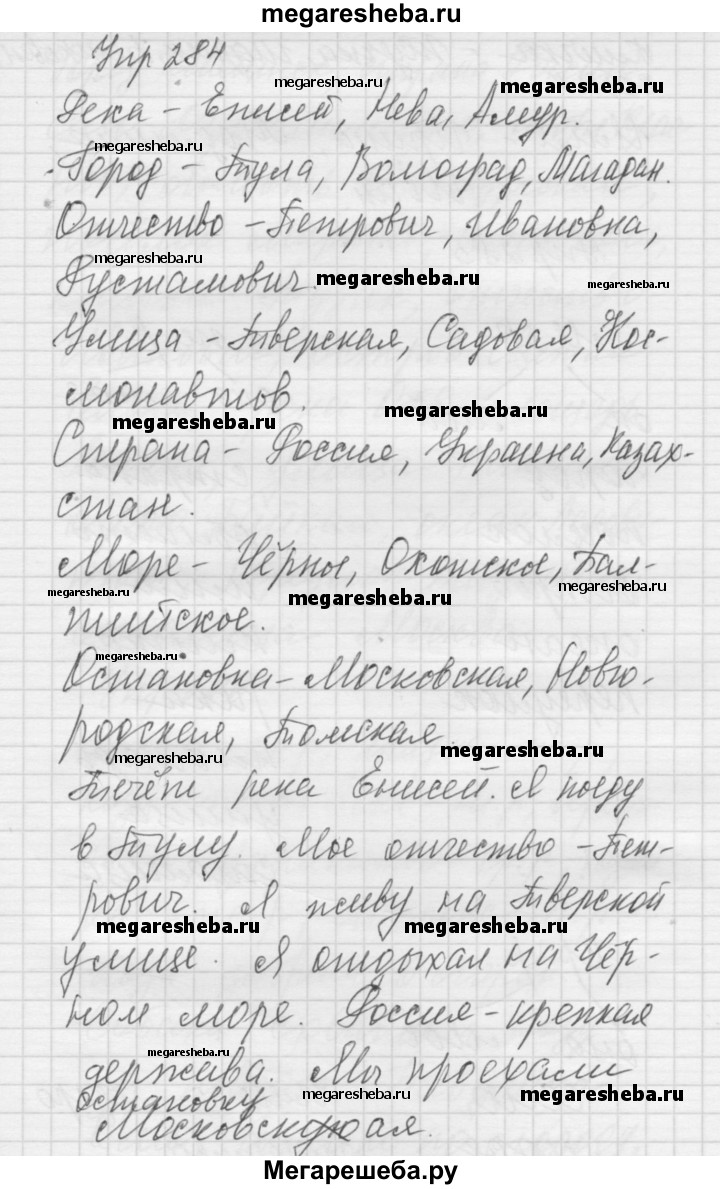 megaresheba.ru
Упр 284
megaresheba.ru megaresheba.ru
Река - Енисей, Нева, Амур.
megaresheba.ru
Город - Тула, Волгоград, Магадан.
Отчество - Петрович, Ивановна,
megaresheba.ru megaresheba.ru megaresheba.ru
Рустамович.
Улица - Тверская, Садовая, Кос-
монавтов.
megaresheba.ru megaresheba.ru
Страна - Россия, Украина, Казах-
стан.
Море - Чёрное, Охотское, Бал-
megaresheba.ru megaresheba.ru megaresheba.ru
тийское.
megaresheba.ru
Остановка - Московская, Новго-
родская, Томская.
megaresheba.ru megaresheba.ru
Течёт река Енисей. Я поеду
в Тулу. Мое отчество - Пет-
рович. Я живу на Тверской
megaresheba.ru megaresheba.ru
улице. Я отдыхал на Чёр-
ном море. Россия - крепкая
megaresheba.ru
держава. Мы проехали
остановку megaresheba.ru megaresheba.ru
Московскую ая.
Мегарешеба.ру